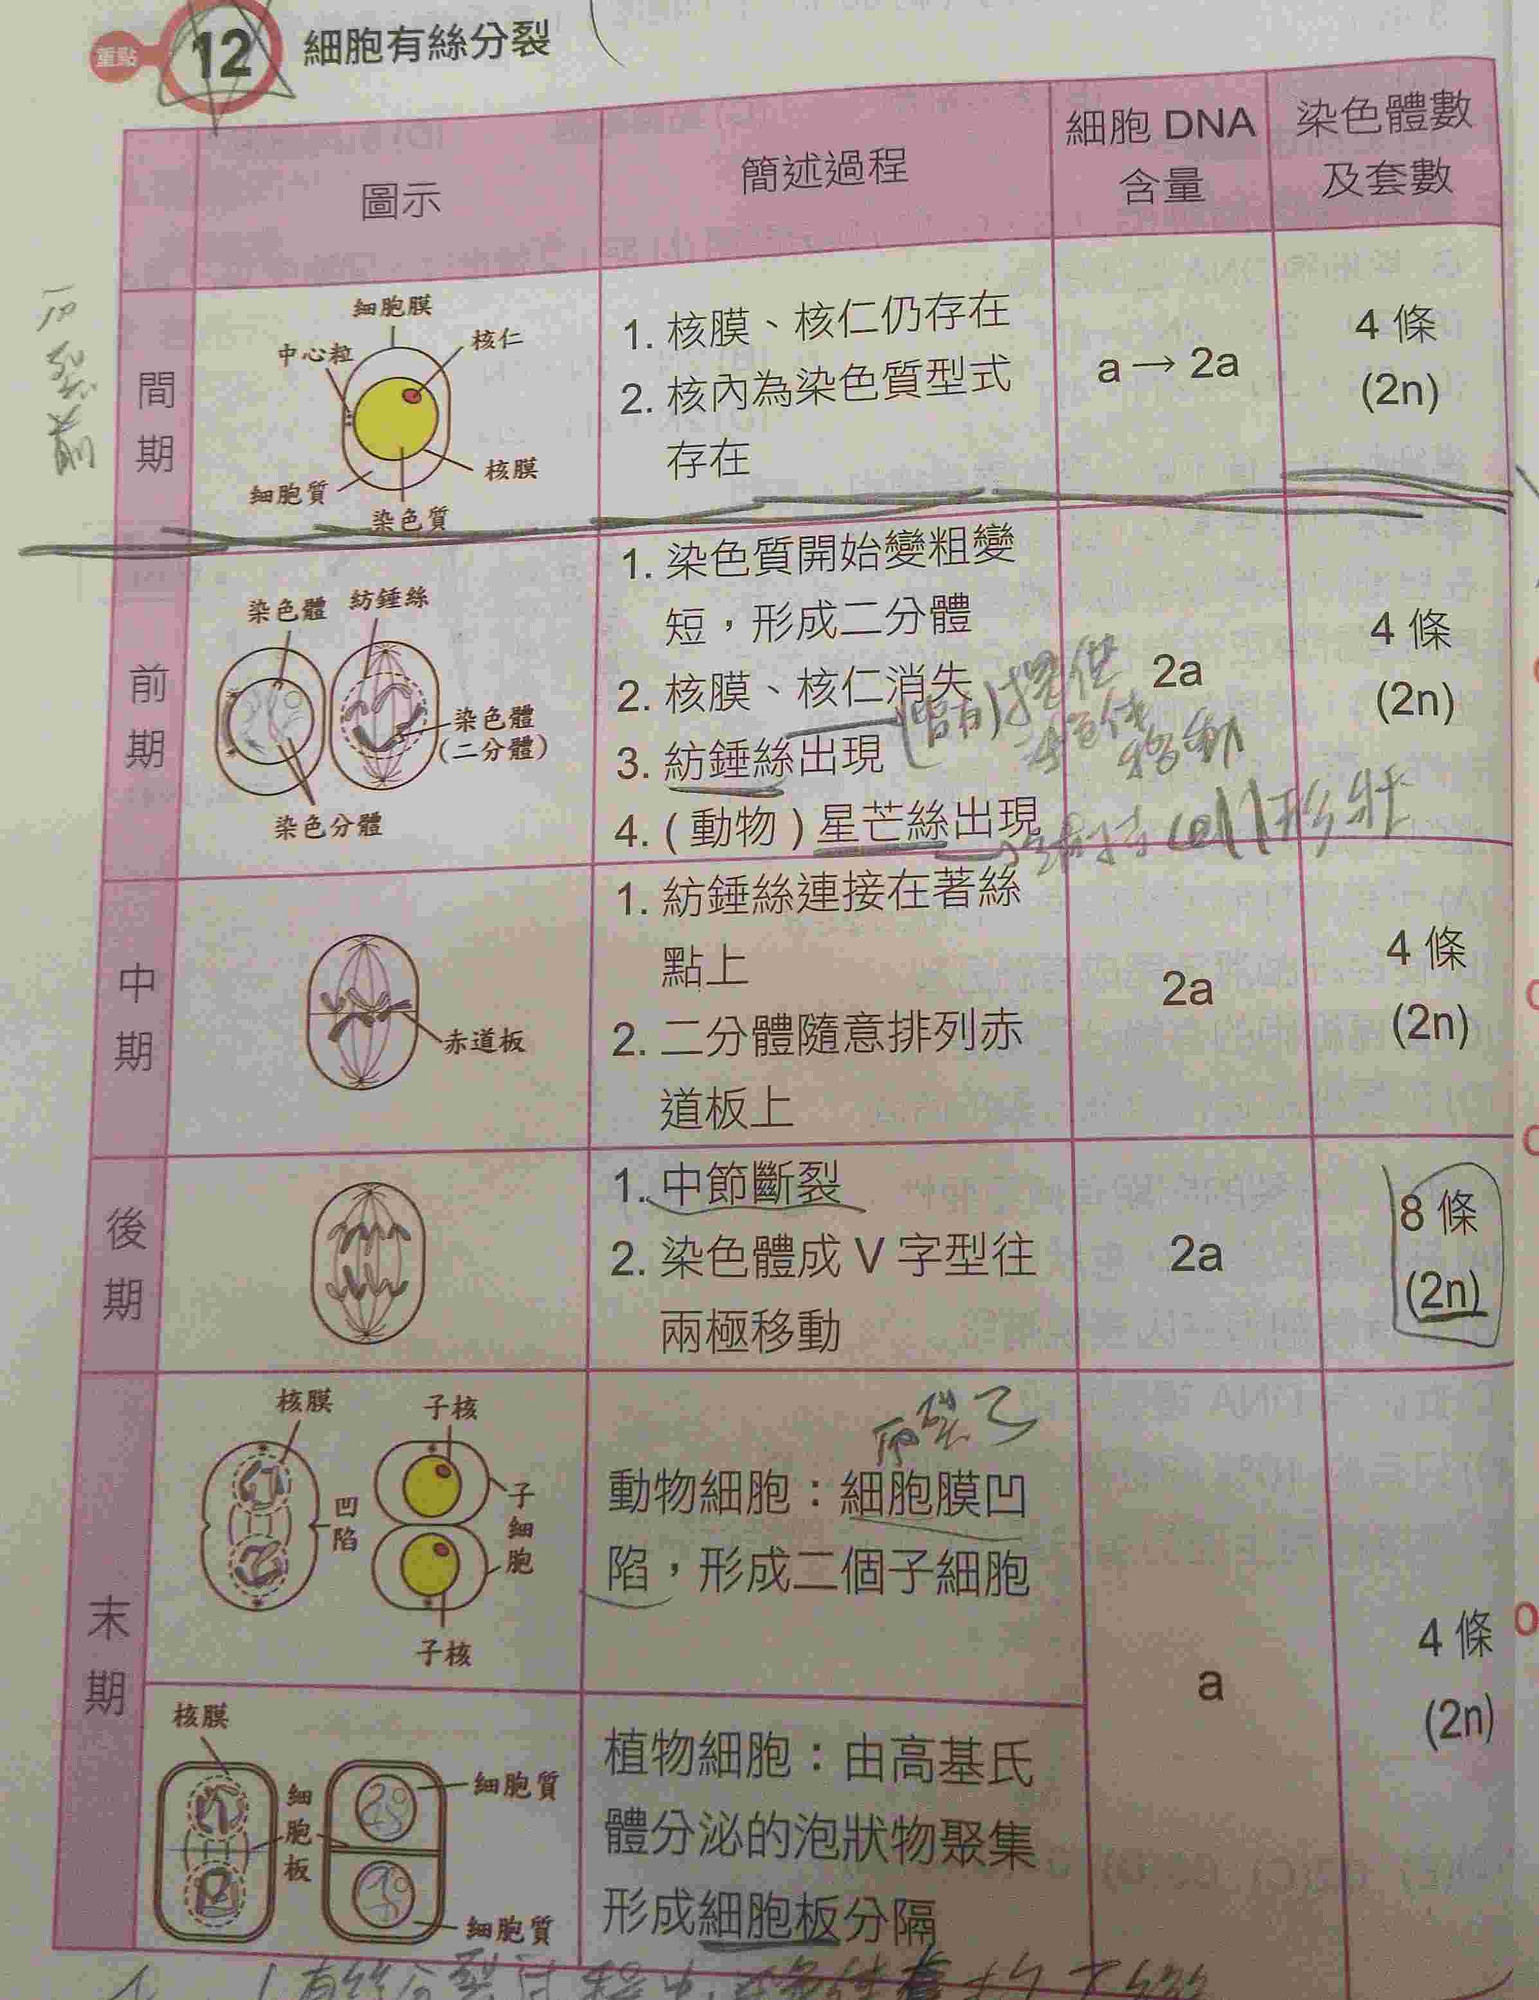 重點 12 細胞有絲分裂
圖示
簡述過程
細胞 DNA
含量
染色體數
及套數
分裂前
間期
細胞膜
中心粒
核仁
細胞質
核膜
染色質
1. 核膜、核仁仍存在
2. 核內為染色質型式
存在
a → 2a
4 條
(2n)
前期
染色體
紡錘絲
染色體
(二分體)
染色分體
1. 染色質開始變粗變
短，形成二分體
2. 核膜、核仁消失
3. 紡錘絲出現
4. ( 動物 ) 星芒絲出現
提供
移動
形狀
2a
4 條
(2n)
中期
赤道板
1. 紡錘絲連接在著絲
點上
2. 二分體隨意排列赤
道板上
2a
4 條
(2n)
後期
1. 中節斷裂
2. 染色體成 V 字型往
兩極移動
2a
8 條
(2n)
末期
核膜
凹陷
子核
子細胞
子核
動物細胞：細胞膜凹
陷，形成二個子細胞
核膜
細胞板
細胞質
細胞質
植物細胞：由高基氏
體分泌的泡狀物聚集
形成細胞板分隔
a
4 條
(2n)